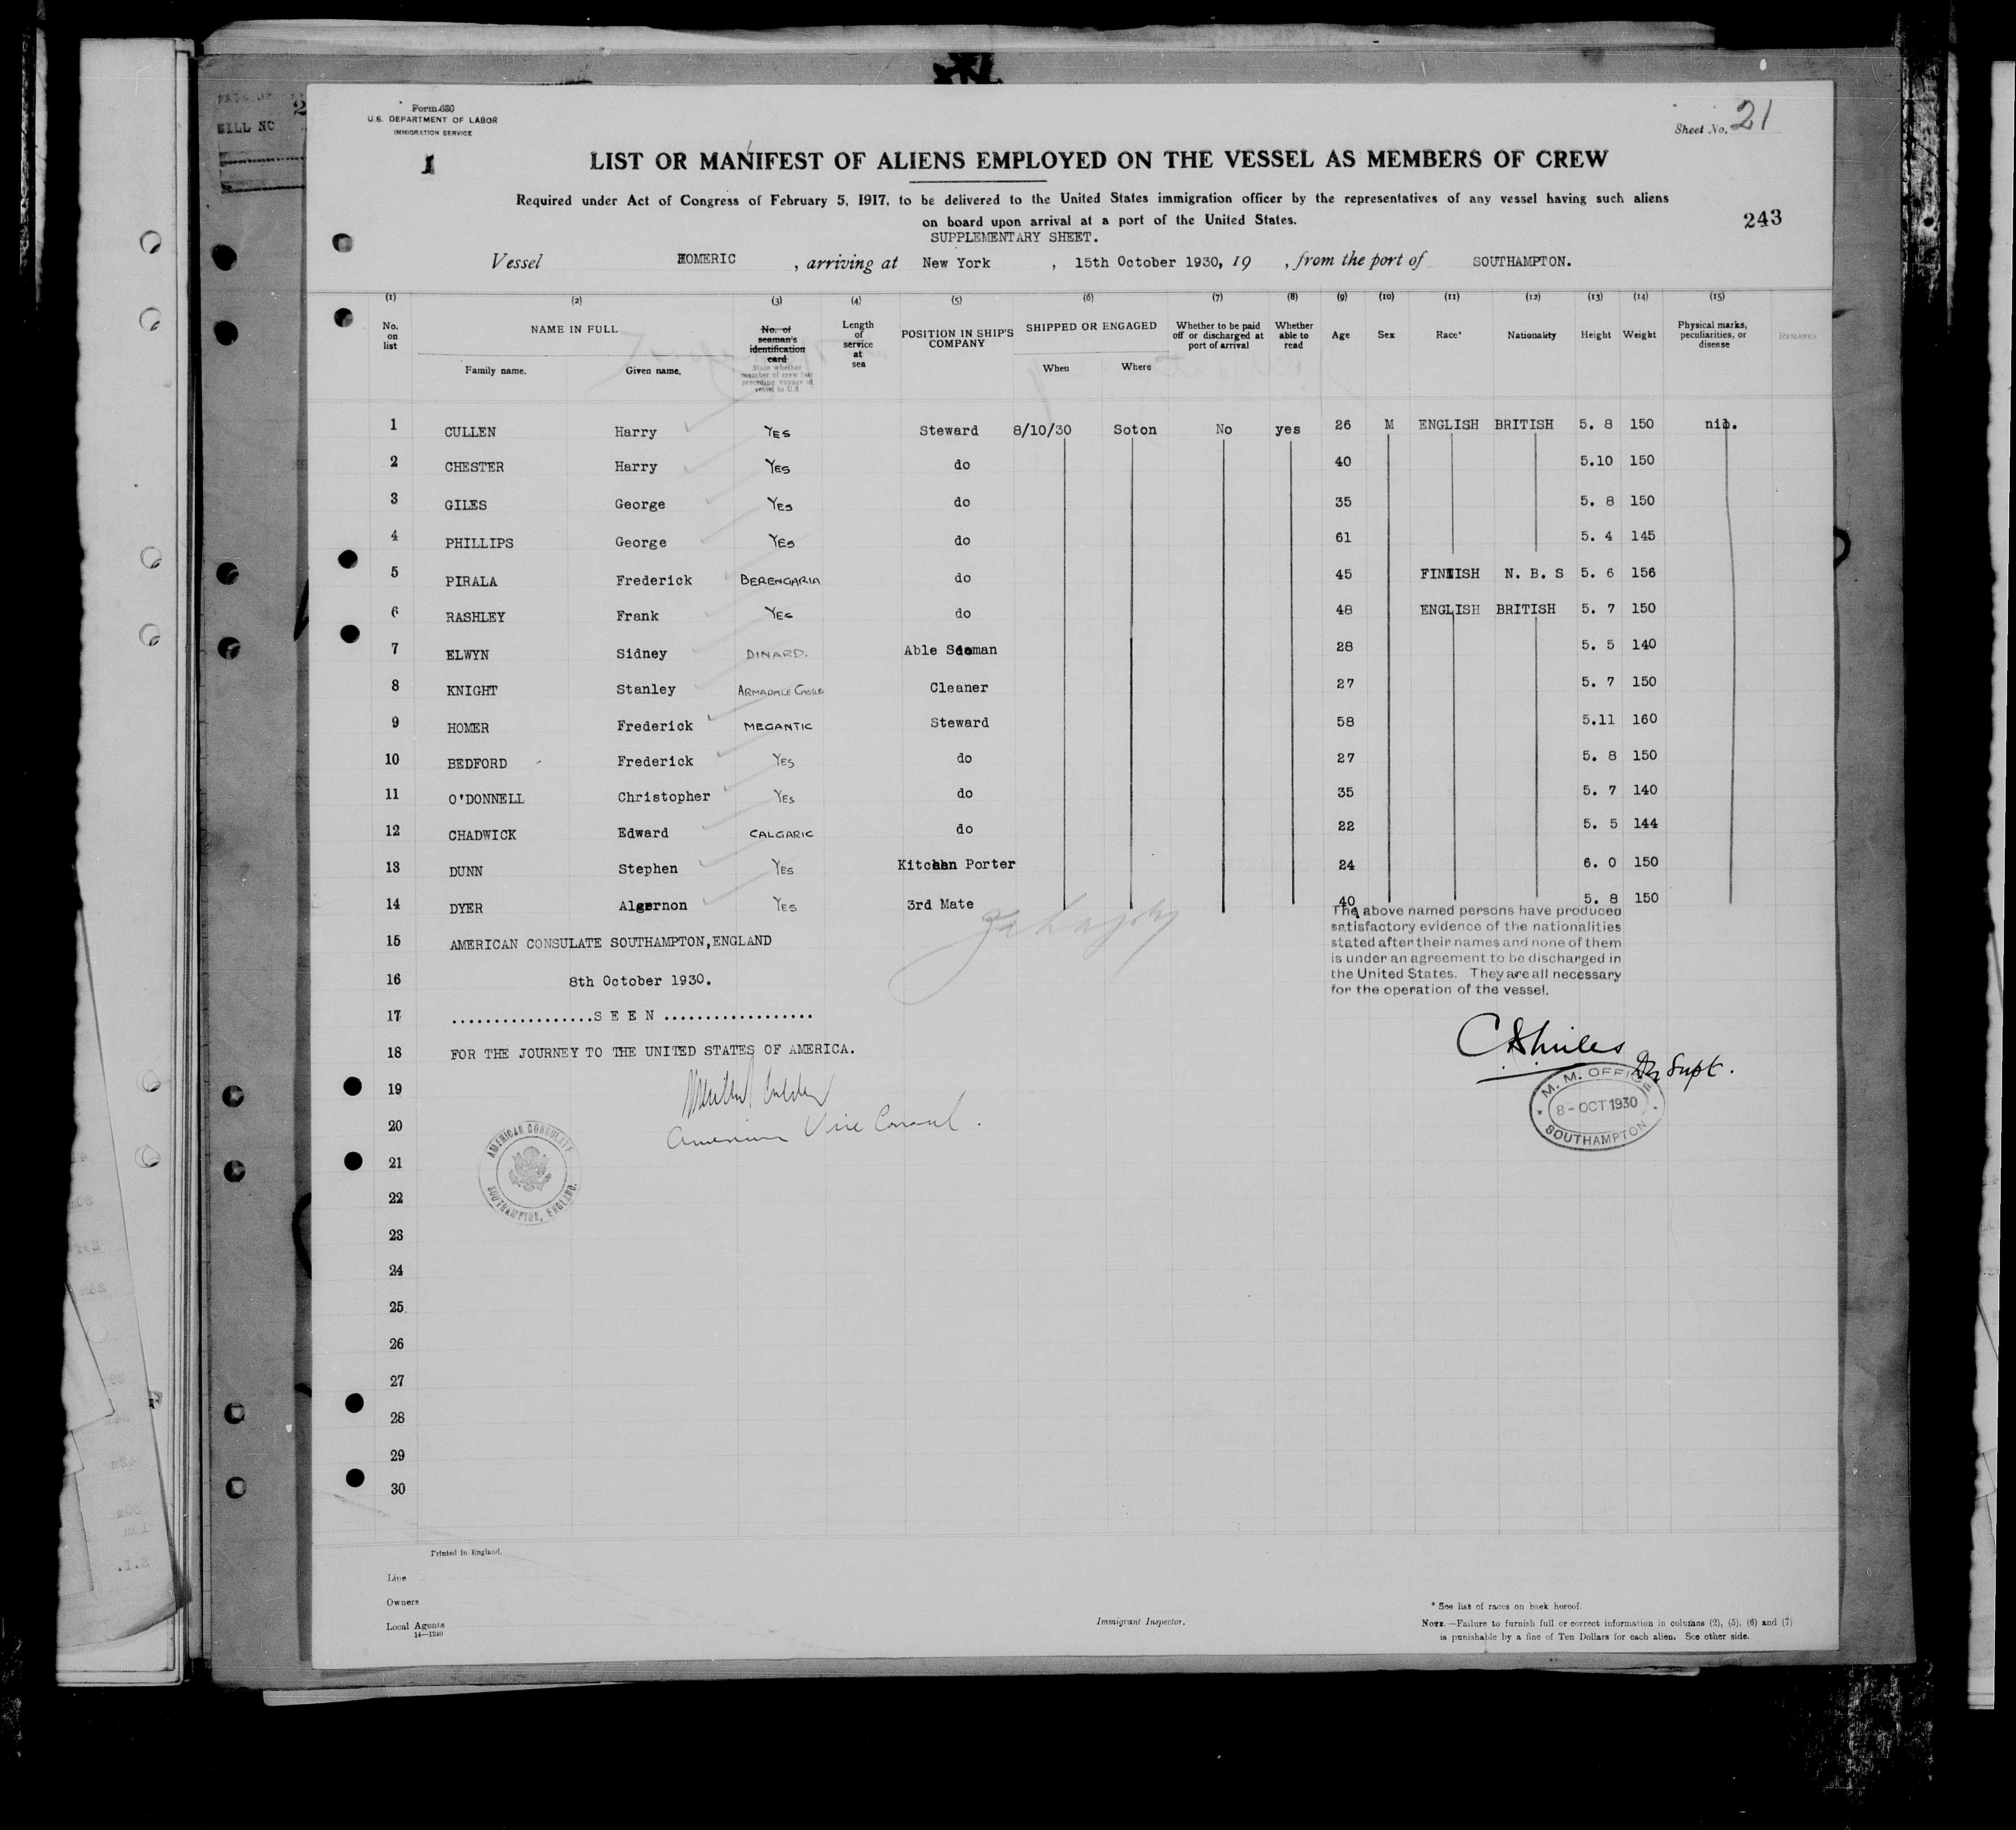 Form 630
U.S. DEPARTMENT OF LABOR
IMMIGRATION SERVICE
1
Sheet No. 21
BILL NO
LIST OR MANIFEST OF ALIENS EMPLOYED ON THE VESSEL AS MEMBERS OF CREW
Required under Act of Congress of February 5, 1917, to be delivered to the United States immigration officer by the representatives of any vessel having such aliens
on board upon arrival at a port of the United States.
243
SUPPLEMENTARY SHEET.
Vessel HOMERIC , arriving at New York , 15th October 1930, 19 , from the port of SOUTHAMPTON.
(1) (2) (3) (4) (5) (6) (7) (8) (9) (10) (11) (12) (13) (14) (15)
No. on list NAME IN FULL Family name. Given name. No. of seaman's identification card State whether member of crew last preceding voyage of vessel to U.S. Length of service at sea POSITION IN SHIP'S COMPANY SHIPPED OR ENGAGED When Where Whether to be paid off or discharged at port of arrival Whether able to read Age Sex Race* Nationality Height Weight Physical marks, peculiarities, or disease REMARKS
1 CULLEN Harry YES Steward 8/10/30 Soton No yes 26 M ENGLISH BRITISH 5. 8 150 nil.
2 CHESTER Harry YES do 40 5.10 150
3 GILES George YES do 35 5. 8 150
4 PHILLIPS George YES do 61 5. 4 145
5 PIRALA Frederick BERENGARIA do 45 FINNISH N. B. S 5. 6 156
6 RASHLEY Frank YES do 48 ENGLISH BRITISH 5. 7 150
7 ELWYN Sidney DINARD. Able Seaman 28 5. 5 140
8 KNIGHT Stanley ARMADALE CASTLE Cleaner 27 5. 7 150
9 HOMER Frederick MEGANTIC Steward 58 5.11 160
10 BEDFORD Frederick YES do 27 5. 8 150
11 O'DONNELL Christopher YES do 35 5. 7 140
12 CHADWICK Edward CALGARIC do 22 5. 5 144
13 DUNN Stephen YES Kitchen Porter 24 6. 0 150
14 DYER Algernon YES 3rd Mate 40 5. 8 150
The above named persons have produced
satisfactory evidence of the nationalities
stated after their names and none of them
is under an agreement to be discharged in
the United States. They are all necessary
for the operation of the vessel.
15 AMERICAN CONSULATE SOUTHAMPTON,ENGLAND
16 8th October 1930.
17 .................S E E N ..................
18 FOR THE JOURNEY TO THE UNITED STATES OF AMERICA.
Supt.
M. M. OFFICE
8-OCT 1930
SOUTHAMPTON
19
American Vice Consul.
20
AMERICAN CONSULATE
SOUTHAMPTON, ENGLAND.
21
22
23
24
25
26
27
28
29
30
Printed in England.
Line
Owners
Local Agents
14—1240
Immigrant Inspector.
* See list of races on back hereof.
NOTE.—Failure to furnish full or correct information in columns (2), (5), (6) and (7)
is punishable by a fine of Ten Dollars for each alien. See other side.